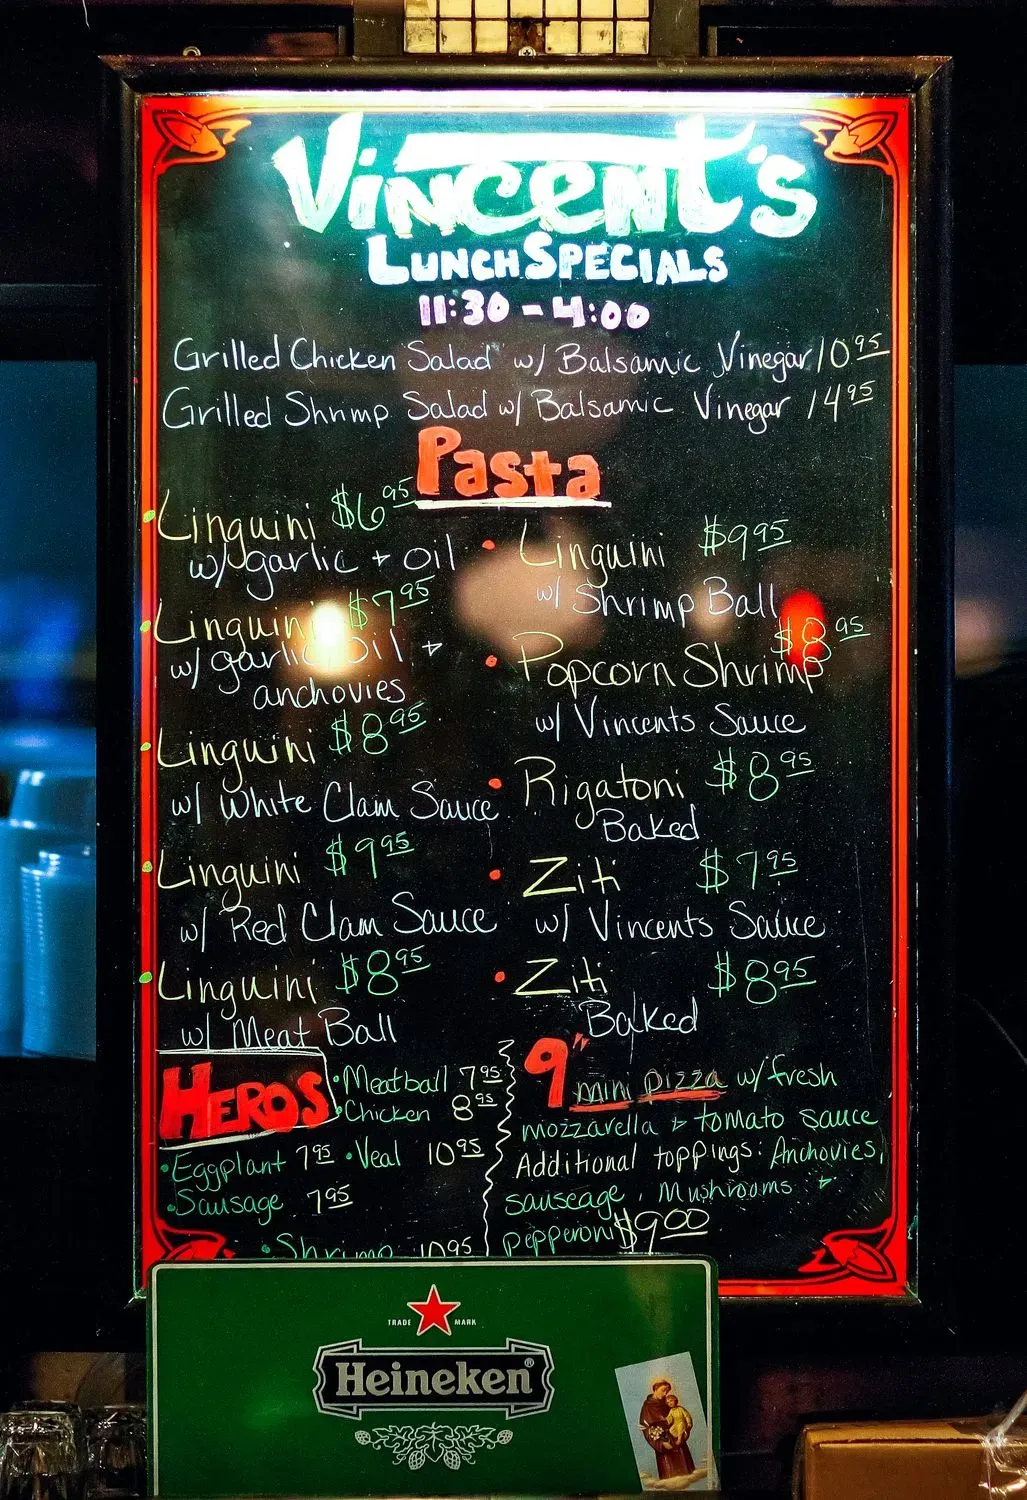 Vincent's
Lunch Specials
11:30 - 4:00
Grilled Chicken Salad w/ Balsamic Vinegar 10.95
Grilled Shrimp Salad w/ Balsamic Vinegar 14.95
Pasta
Linguini $6.95
w/ garlic + oil
Linguini $7.95
w/ garlic, oil +
anchovies
Linguini $8.95
w/ White Clam Sauce
Linguini $9.95
w/ Red Clam Sauce
Linguini $8.95
w/ Meat Ball
Linguini $9.95
w/ Shrimp Ball
$8.95
Popcorn Shrimp
w/ Vincents Sauce
Rigatoni $8.95
Baked
Ziti $7.95
w/ Vincents Sauce
Ziti $8.95
Baked
HEROS
Meatball 7.95
Chicken 8.95
Eggplant 7.95 Veal 10.95
Sausage 7.95
Shrimp 10.95
9" mini pizza w/ fresh
mozzarella + tomato sauce
Additional toppings: Anchovies,
sauseage, Mushrooms +
pepperoni $9.00
TRADE MARK
Heineken®